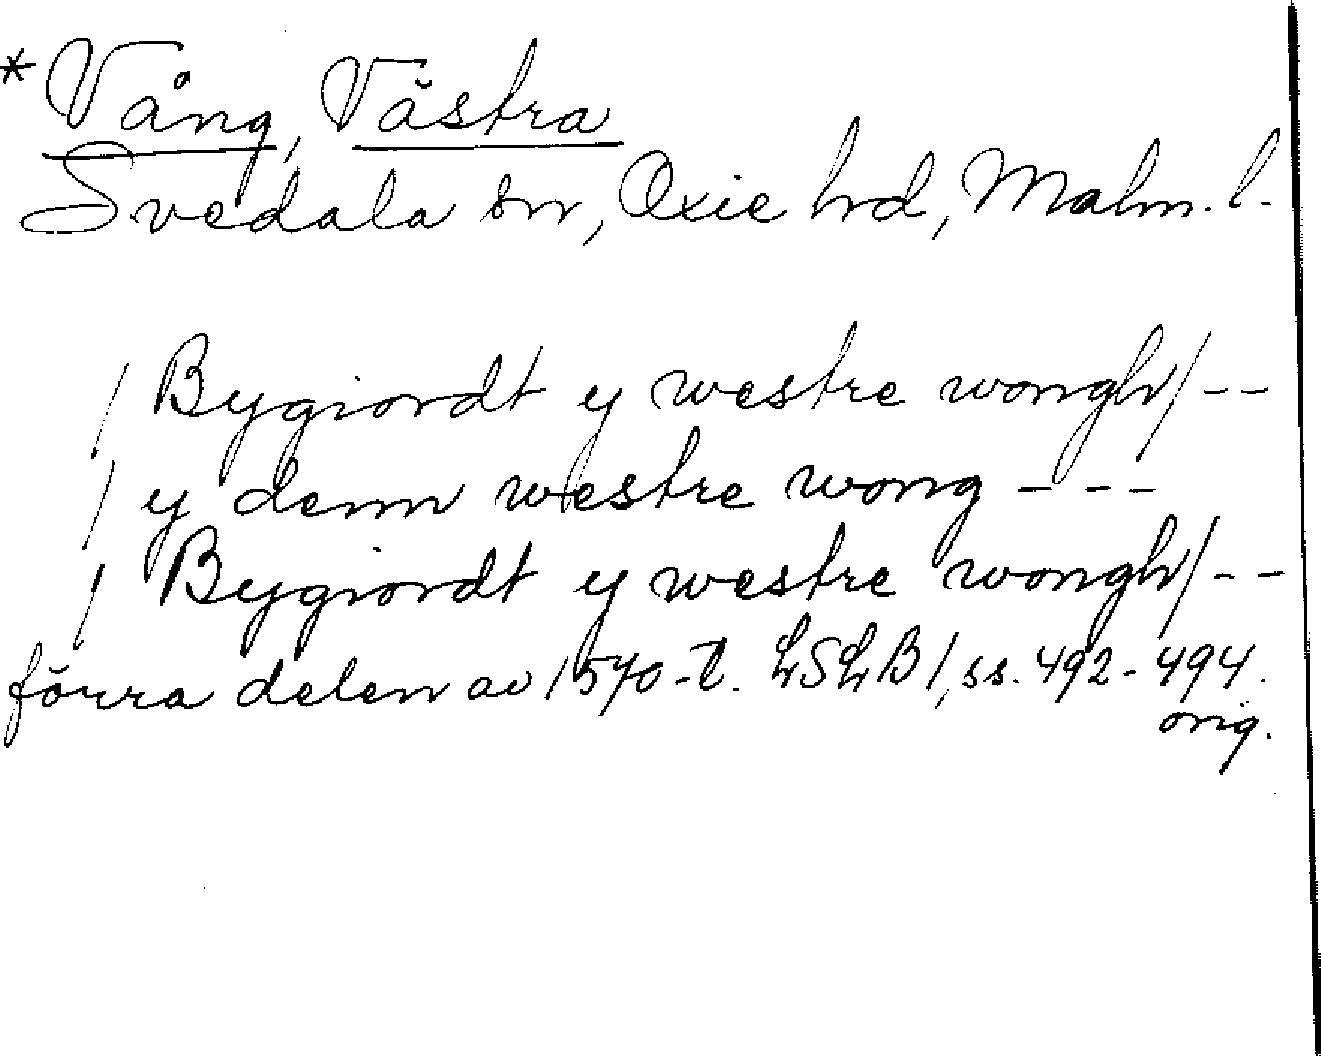 *Vång, Västra
Svedala sn, Oxie hrd, Malm. l.
/ Bygiordt y westre wongh/ --
/ y denn westre wong ---
/ Bygiordt y westre wongh/ --
förra delen av 1570-t. LSLB 1, ss. 492-494.
orig.